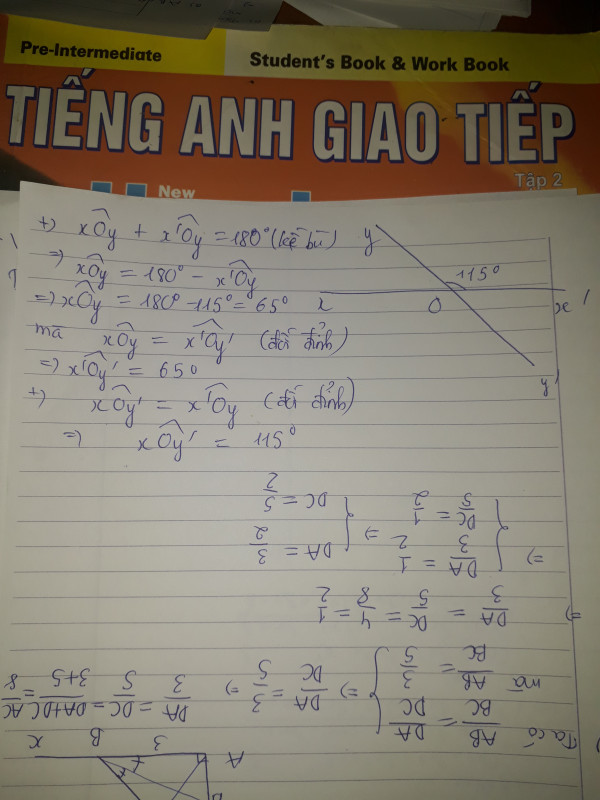 Pre-Intermediate
Student's Book & Work Book
TIẾNG ANH GIAO TIẾP
Tập 2
New
+) xÔy + x'Ôy = 180° (kề bù)
=> xÔy = 180° - x'Ôy
=> xÔy = 180° - 115° = 65°
mà xÔy = x'Ôy' (đối đỉnh)
=> x'Ôy' = 65°
+) xÔy' = x'Ôy (đối đỉnh)
=> xÔy' = 115°
y
115°
x
O
x'
y'
A
3
B
x
Ta có AB/BC = DA/DC
mà AB/BC = 3/5
} => DA/DC = 3/5 => DA/3 = DC/5 = DA+DC/3+5 = AC/8
=> DA/3 = DC/5 = 4/8 = 1/2
=> { DA/3 = 1/2
DC/5 = 1/2
=> { DA = 3/2
DC = 5/2